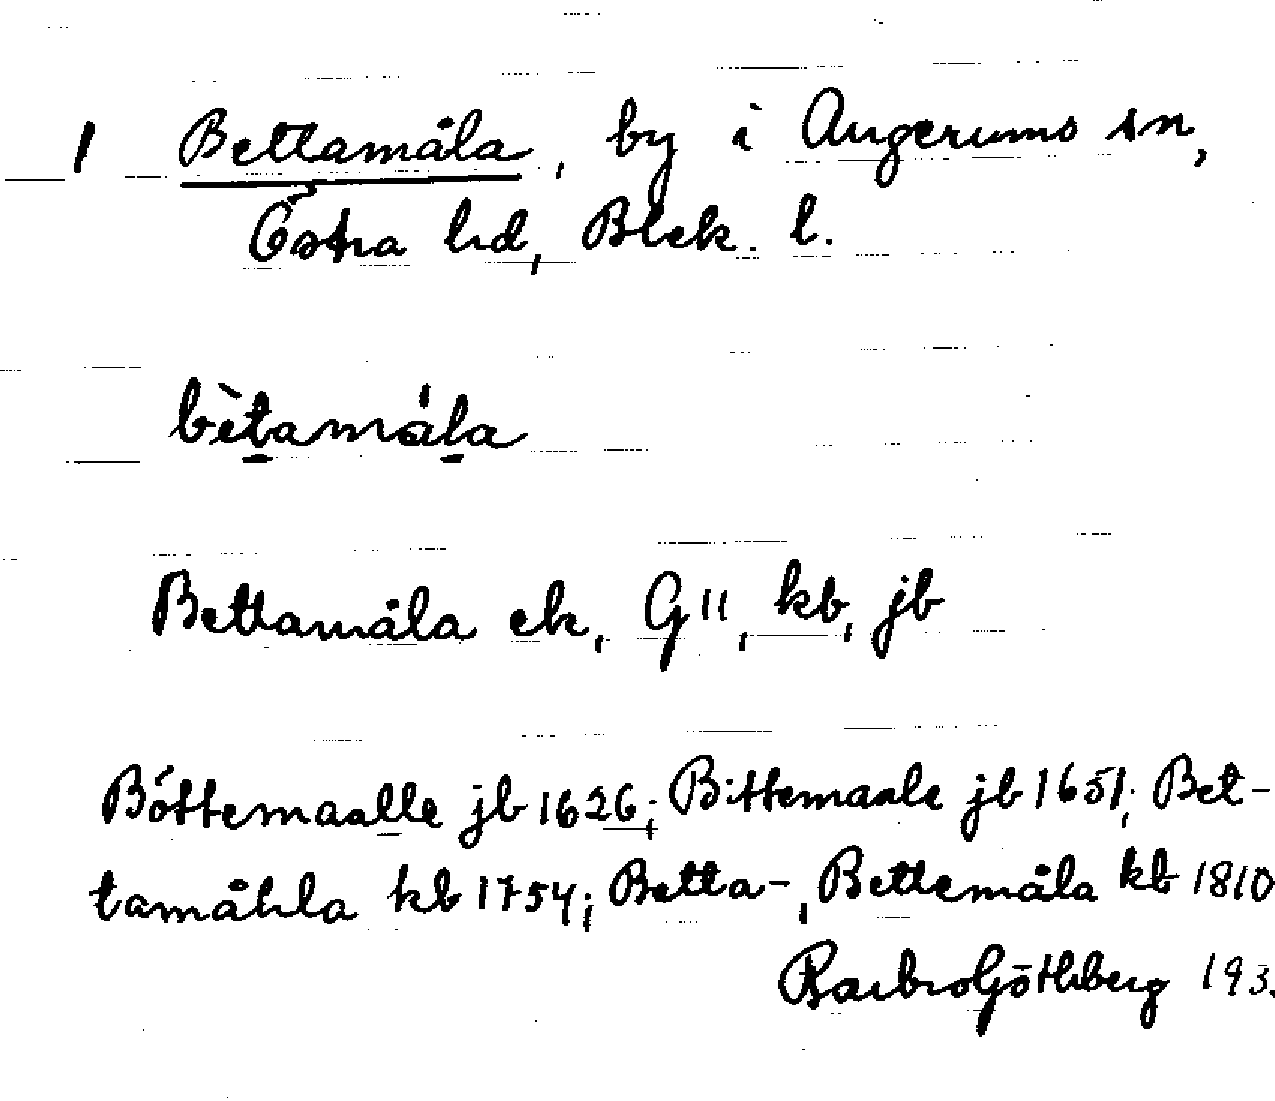 1 Bettamåla, by i Augerums sn,
Östra hd, Blek. l.
bètamåla
Bettamåla ek, G11, kb, jb
Bóttemaalle jb 1626; Bittemaale jb 1651; Bet-
tamåhla kb 1754; Betta-, Bettemåla kb 1810
Barbro Göthberg 193.